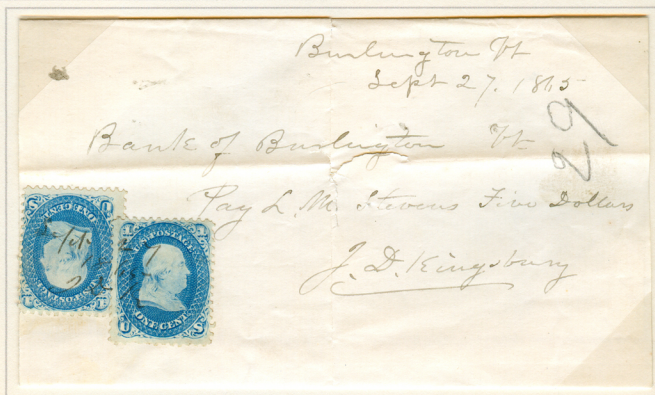 Burlington Vt
Sept 27. 1865
29
Bank of Burlington Vt
Pay L. M. Stevens Five Dollars
J. D. Kingsbury
U.S. POSTAGE
ONE CENT
U.S. POSTAGE
ONE CENT